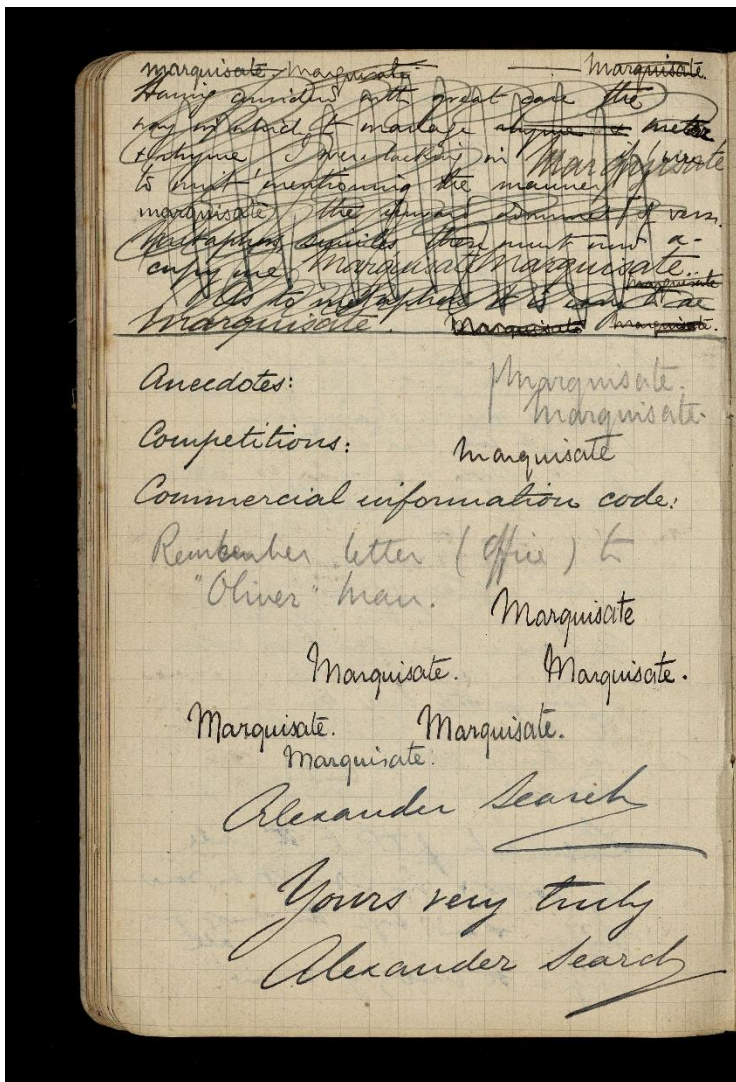 marquisate. Marquisate. Marquisate.
Having considered with great care the
way in which to manage rhyme & metre
& rhyme I were lacking in Marquisate
to omit mentioning the manner of
marquisate the
metaphors similes these must now a-
cupy me. Marquisate Marquisate.
Marquisate
As to metaphors it is
Marquisate. Marquisate Marquisate.
Anecdotes: Marquisate.
Marquisate.
Competitions: Marquisate
Commercial information code:
Remember letter (office) to
"Oliver" man.
Marquisate
Marquisate. Marquisate.
Marquisate. Marquisate.
Marquisate.
Alexander Search
Yours very truly
Alexander Search